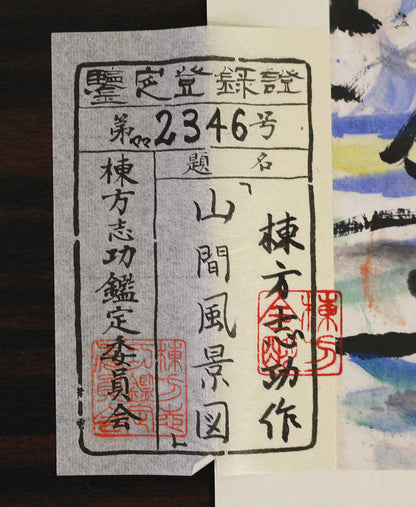 鑿定登録證
第2346号
題名
「山間風景図」
棟方志功作
棟方志功鑑定委員会